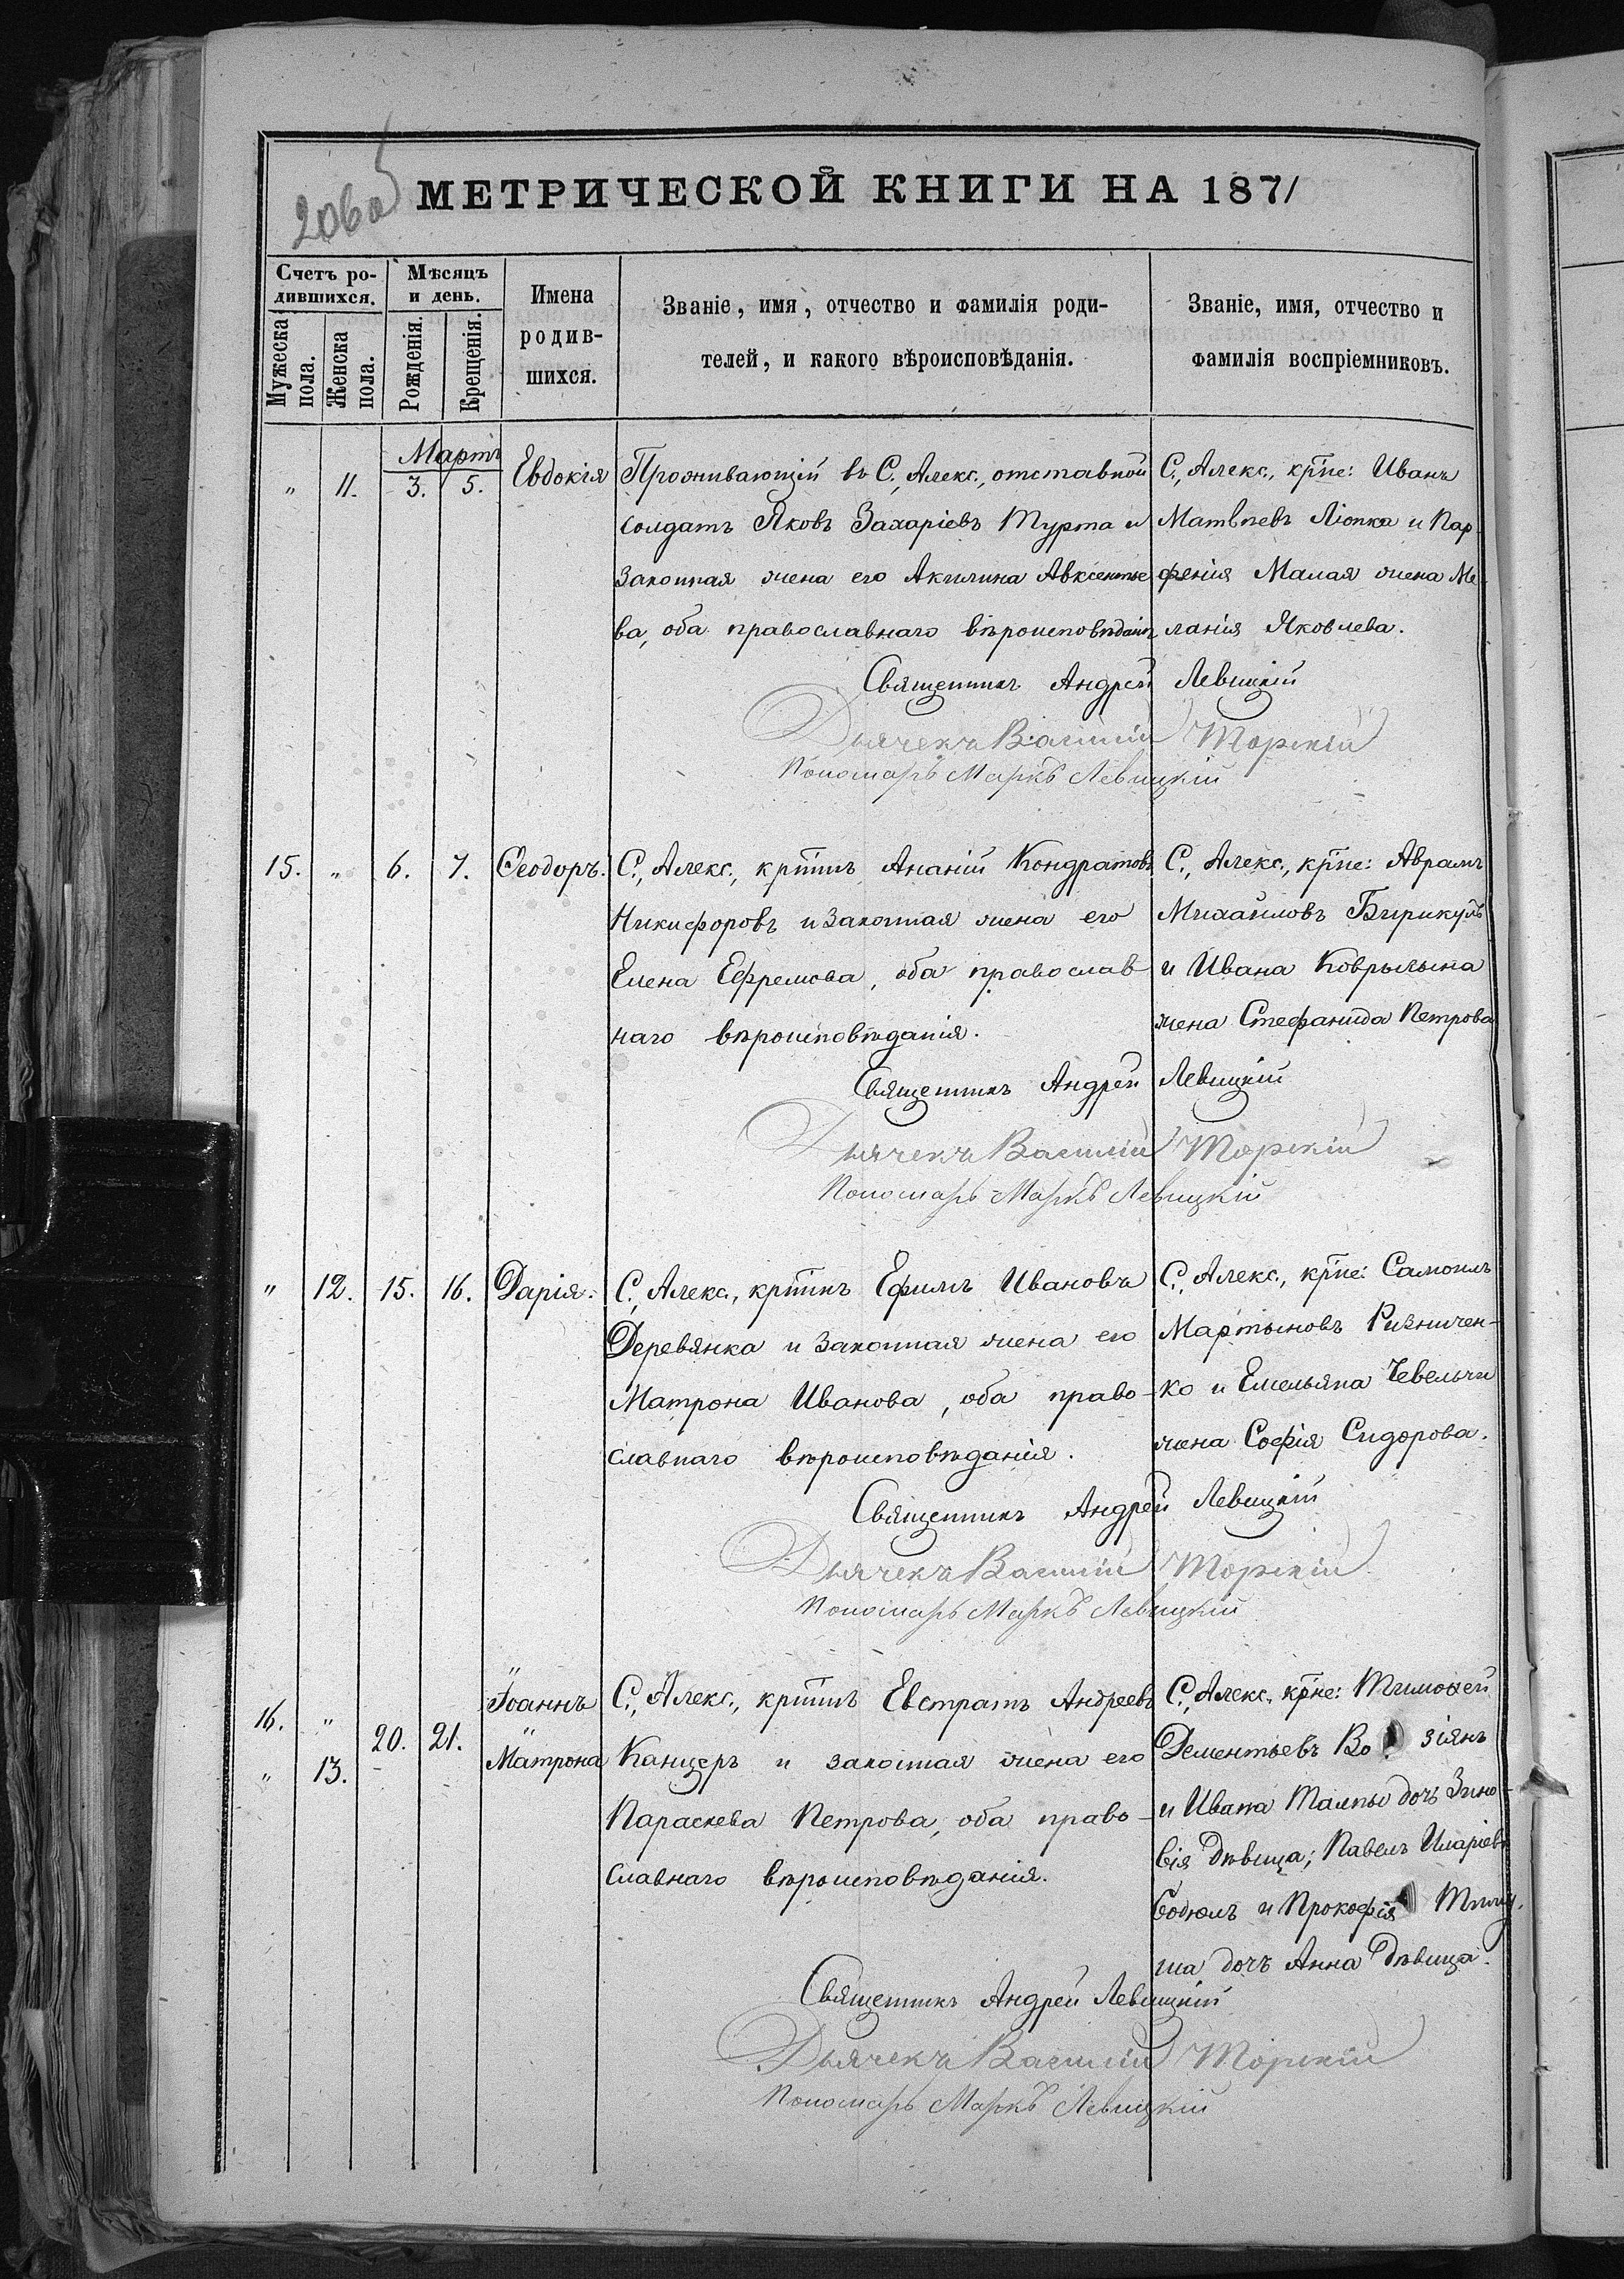 206об
МЕТРИЧЕСКОЙ КНИГИ НА 1871
Счетъ ро-
дившихся.
Мѣсяцъ
и день.
Мужеска
пола.
Женска
пола.
Рожденія.
Крещенія.
Имена
родив-
шихся.
Званіе, имя, отчество и фамилія роди-
телей, и какого вѣроисповѣданія.
Званіе, имя, отчество и
фамилія воспріемниковъ.
Мартъ
" 11. 3. 5. Евдокія
Проживающій въ С., Алекс., отставной
солдатъ Яковъ Захаріевъ Турта и
законная жена его Акилина Авксентье
ва, оба православнаго вѣроисповѣданія
С., Алекс., крпе: Иванъ
Матвѣевъ Люпка и Пар-
фенія Малая жена Ме-
ланія Яковлева.
Священникъ Андрей Левицкій
Дьячекъ Василій Торскій
Пономарь Маркъ Левицкій
15. " 6. 7. Ѳеодоръ.
С., Алекс., крпинъ Ананій Кондратовъ
Никифоровъ и законная жена его
Елена Ефремова, оба православ
наго вѣроисповѣданія.
С., Алекс., крпе: Аврамъ
Михайловъ Бирикулъ
и Ивана Коврылына
жена Стефанида Петрова
Священникъ Андрей Левицкій
Дьячекъ Василій Торскій
Пономарь Маркъ Левицкій
" 12. 15. 16. Дарія.
С., Алекс., крпинъ Ефимъ Ивановъ
Деревянка и законная жена его
Матрона Иванова, оба право-
славнаго вѣроисповѣданія.
С., Алекс., крпе: Самоилъ
Мартыновъ Ризничен-
ко и Емельяна Чевельчи
жена Софія Сидорова.
Священникъ Андрей Левицкій
Дьячекъ Василій Торскій
Пономарь Маркъ Левицкій
16. " 20. 21. "Іоаннъ
" 13. "Матрона
С., Алекс., крпинъ Евстратъ Андреевъ
Канцеръ и законная жена его
Параскева Петрова, оба право-
славнаго вѣроисповѣданія.
С., Алекс., крпе: Тимоѳей
Дементьевъ Во зіянъ
и Ивана Талпы дочь Зино-
вія дѣвица; Павелъ Иларіевъ
и Прокофія
ша дочъ Анна дѣвица.
Священникъ Андрей Левицкій
Дьячекъ Василій Торскій
Пономарь Маркъ Левицкій